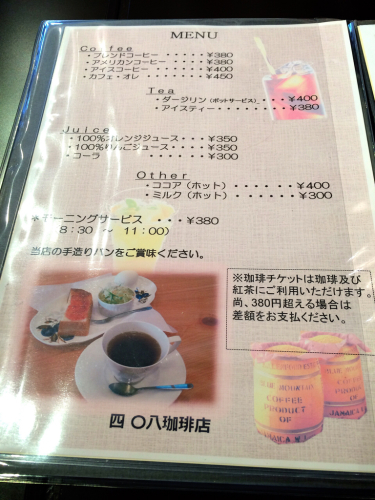 MENU
Coffee
・ブレンドコーヒー ・・・・・¥380
・アメリカンコーヒー ・・・・¥380
・アイスコーヒー ・・・・・¥400
・カフェ・オレ ・・・・・・¥450
Tea
・ダージリン（ポットサービス）・・・・¥400
・アイスティー・・・・・・・・¥380
Juice
・100%オレンジジュース・・・¥350
・100%りんごジュース・・・¥350
・コーラ ・・・・・・・¥300
Other
・ココア（ホット）・・・・・・¥400
・ミルク（ホット） ・・・・・¥300
＊モーニングサービス ・・・¥380
8：30 ～ 11：00）
当店の手造りパンをご賞味ください。
※珈琲チケットは珈琲及び
紅茶にご利用いただけます。
尚、380円超える場合は
差額をお支払ください。
四〇八珈琲店
BLUE MOUNTAIN
COFFEE
PRODUCT
OF
JAMAICA